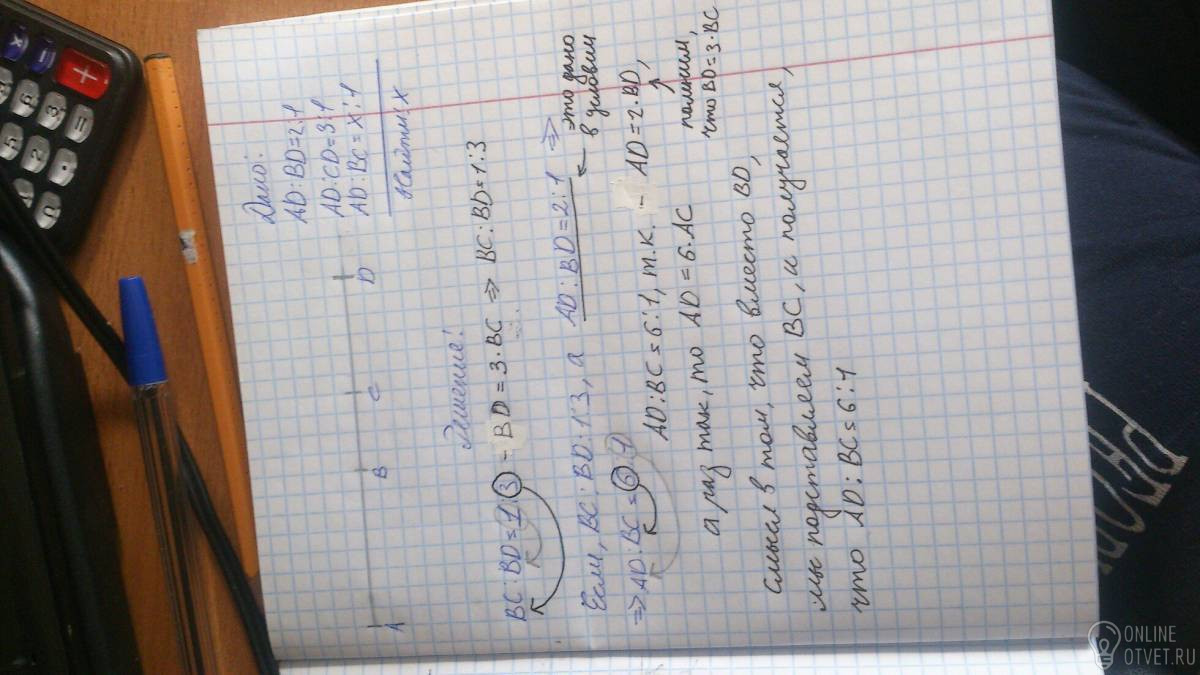 Дано:
AD:BD=2:1
AD:CD=3:1
AD:BC=x:1
Найти: x
A B C D
Решение:
BC:BD=1:3 - BD=3·BC ⇒ BC:BD=1:3
Если, BC:BD:1:3, а AD:BD=2:1 ⇒
это дано
в условии
⇒ AD:BC=6:1
AD:BC=6:1, т.к. - AD=2·BD,
помним,
что BD=3·BC
а раз так, то AD=6·AC
Смысл в том, что вместо BD,
мы подставляем BC, и получается,
что AD:BC=6:1
ONLINE
OTVET.RU